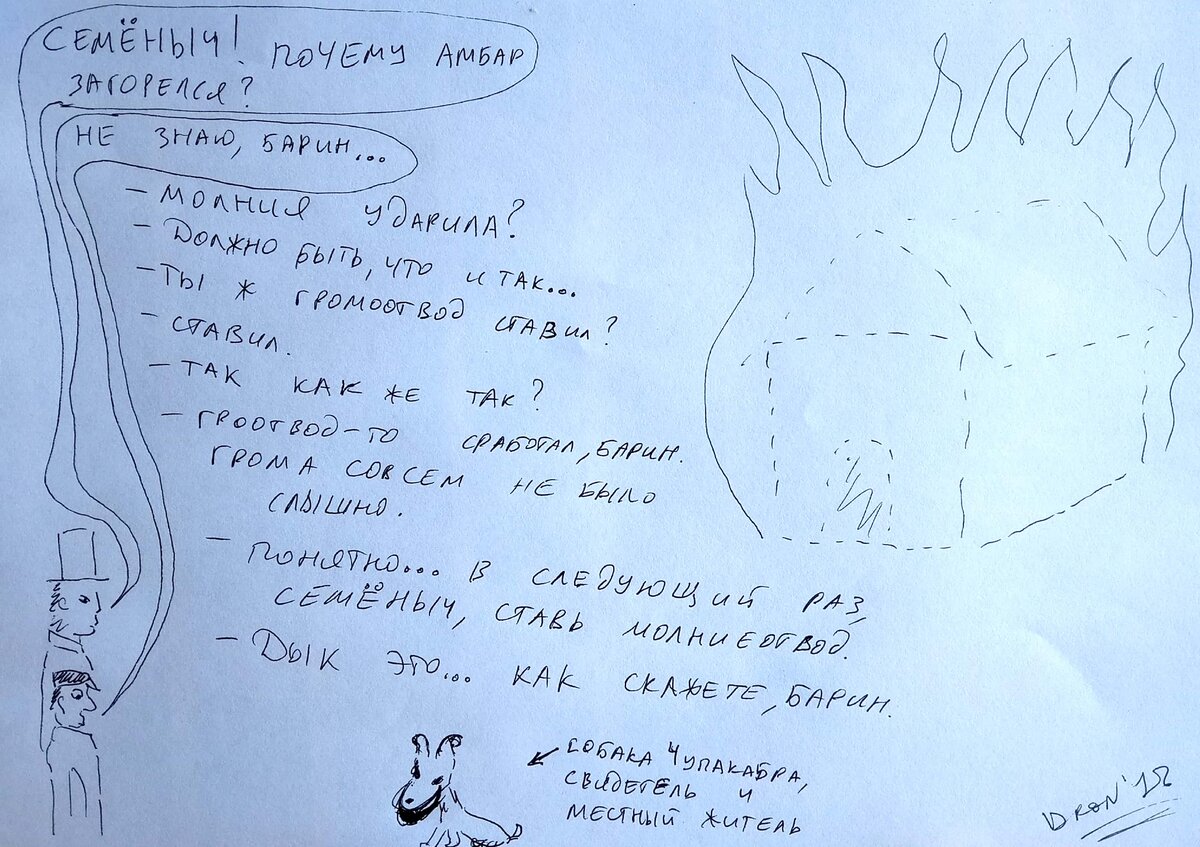 СЕМЁНЫЧ! ПОЧЕМУ АМБАР
ЗАГОРЕЛСЯ?
НЕ ЗНАЮ, БАРИН...
- МОЛНИЯ УДАРИЛА?
- ДОЛЖНО БЫТЬ, ЧТО И ТАК...
- ТЫ Ж ГРОМООТВОД СТАВИЛ?
- СТАВИЛ.
- ТАК КАК ЖЕ ТАК?
- ГРООТВОД-ТО СРАБОТАЛ, БАРИН.
ГРОМА СОВСЕМ НЕ БЫЛО
СЛЫШНО.
- ПОНЯТНО... В СЛЕДУЮЩИЙ РАЗ,
СЕМЁНЫЧ, СТАВЬ МОЛНИЕОТВОД.
- ДЫК ЭТО... КАК СКАЖЕТЕ, БАРИН.
СОБАКА ЧУПАКАБРА,
СВИДЕТЕЛЬ И
МЕСТНЫЙ ЖИТЕЛЬ